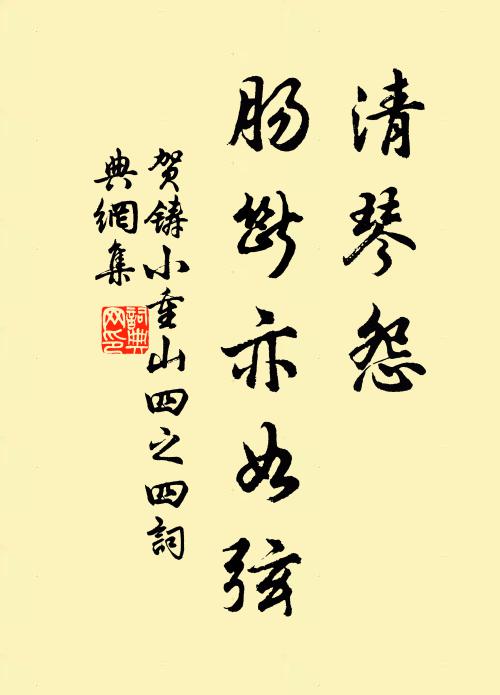 清琴怨
肠断亦如弦
贺铸小重山四之四詞
典網集
詞典
网印